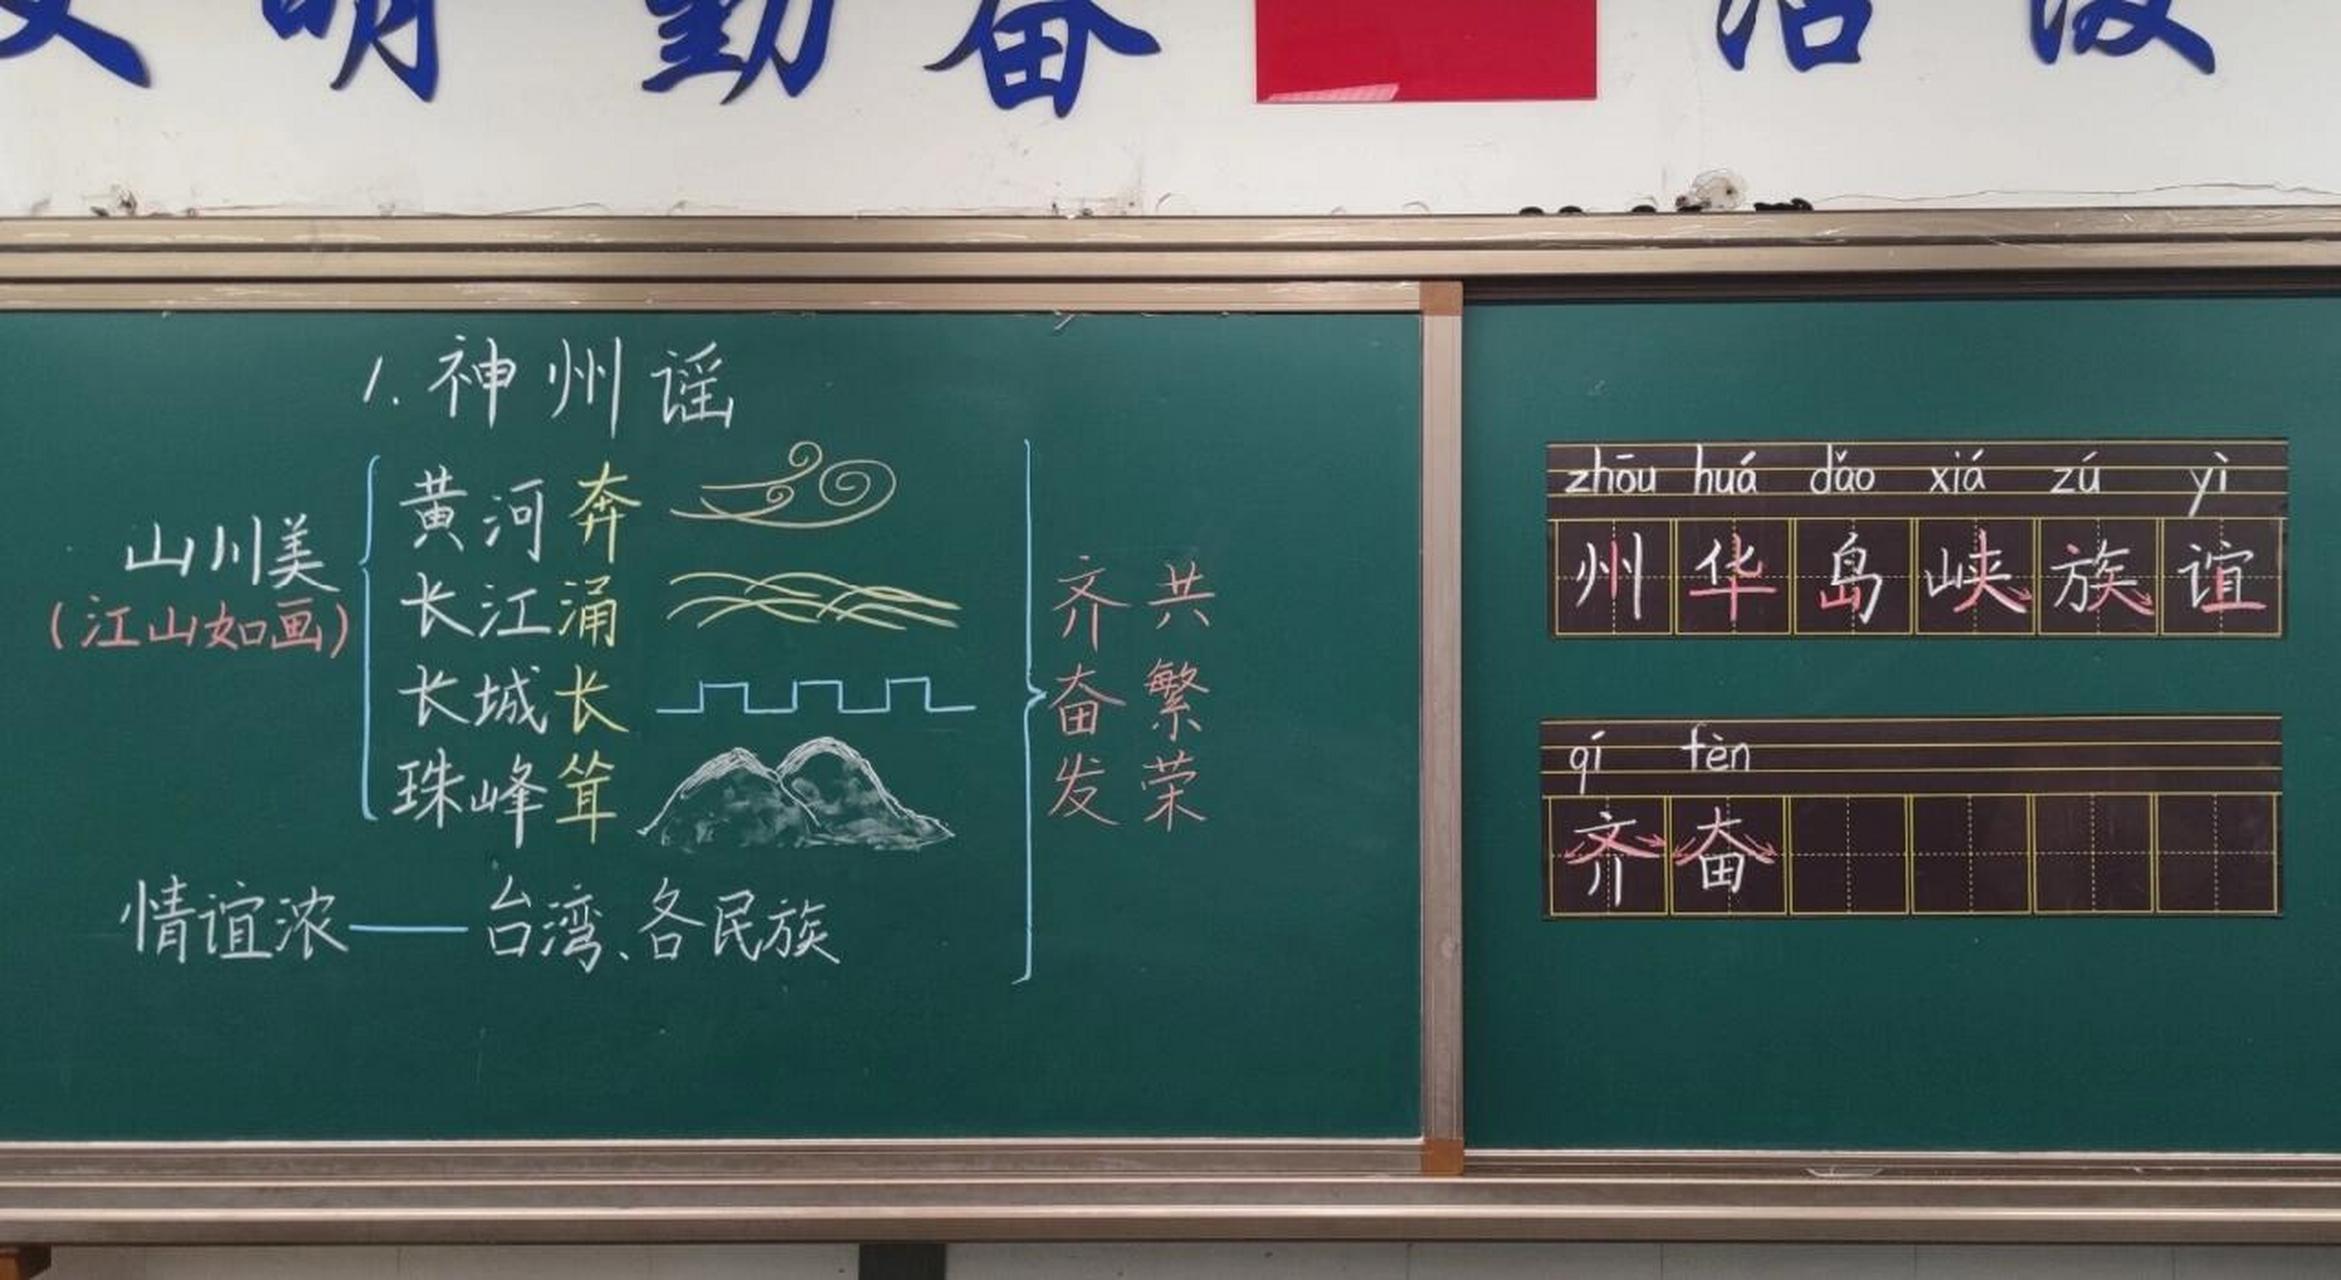 文明 勤奋 活泼
1.神州谣
山川美
(江山如画)
黄河奔
长江涌
长城长
珠峰耸
情谊浓——台湾、各民族
齐奋发
共繁荣
zhōu huá dǎo xiá zú yì
州华岛峡族谊
qí fèn
齐奋